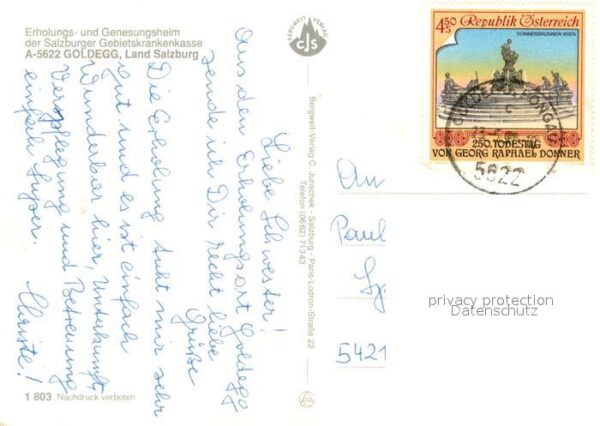 Erholungs- und Genesungsheim
der Salzburger Gebietskrankenkasse
A-5622 GOLDEGG, Land Salzburg
Liebe Schwester!
Aus dem Erholungsort Goldegg
sende ich Dir recht liebe
Grüße.
Die Erholung tuht mir sehr
gut und es ist einfach
Wunderbar hier, Unterkunft,
Verpflegung und Betreuung
einfach super.
Christl!
1 803 Nachdruck verboten
BERGWELT VERLAG
CJS
Bergwelt-Verlag C. Jurischek - Salzburg - Paris-Lodron-Straße 22
Telefon (0662) 71343
4.50 Republik Österreich
DONNERBRUNNEN WIEN
250. TODESTAG
VON GEORG RAPHAEL DONNER
5622
An
Paul
5421
privacy protection
Datenschutz